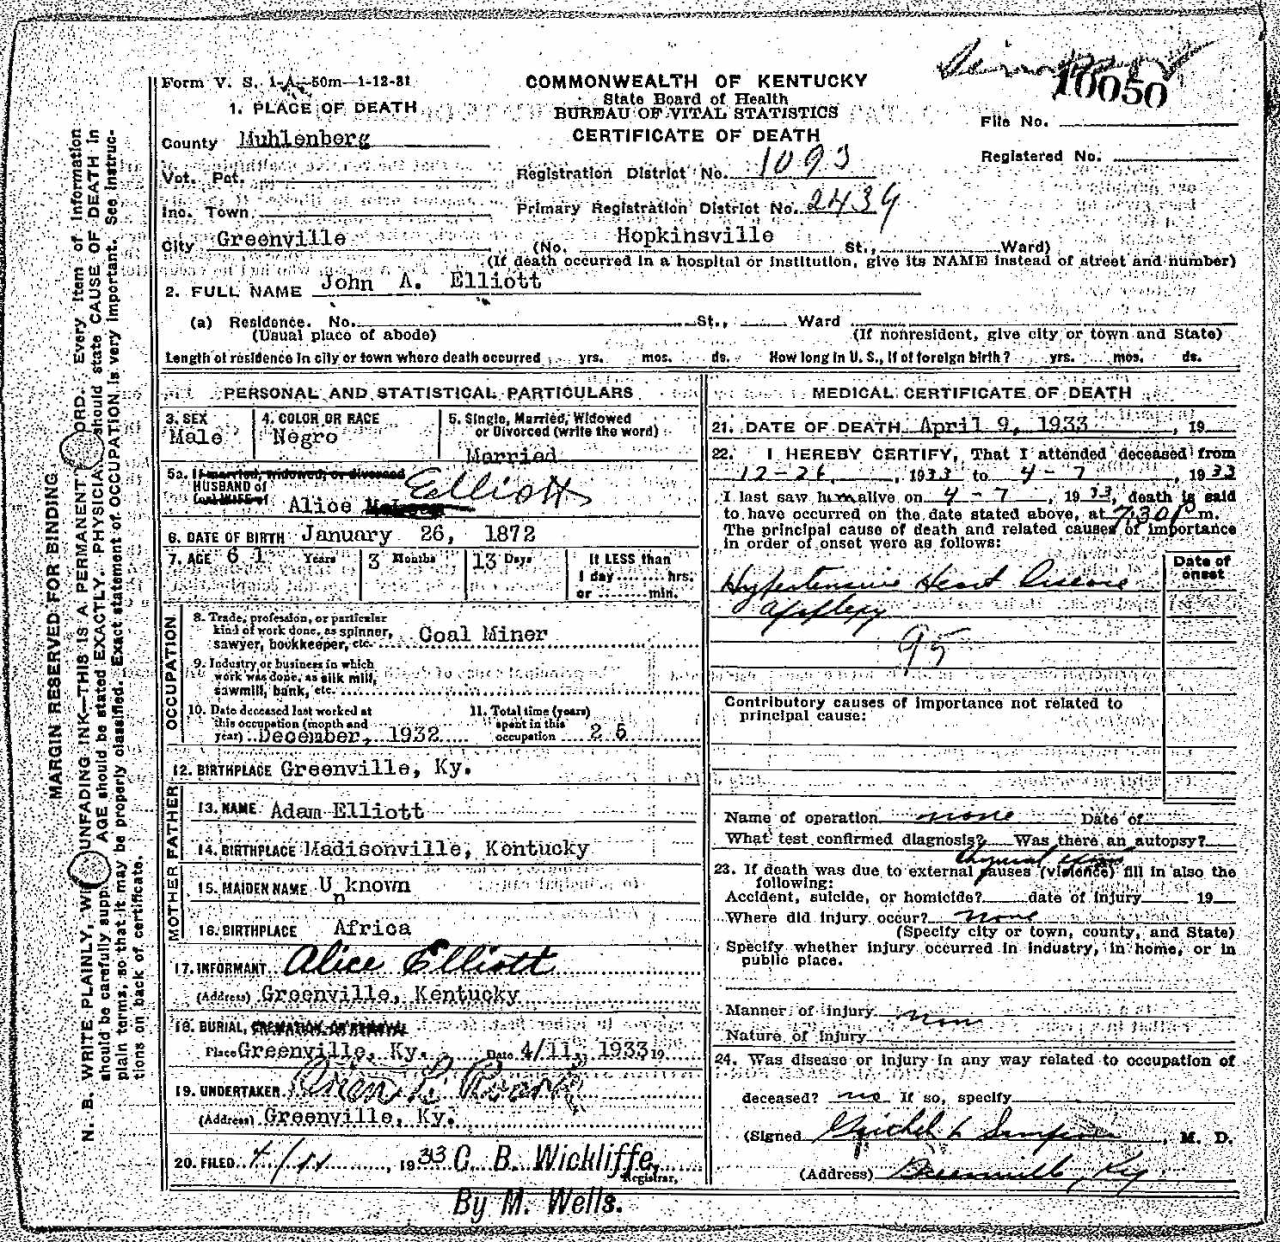 Form V. S. 1-A-50m-1-12-31
COMMONWEALTH OF KENTUCKY
State Board of Health
BUREAU OF VITAL STATISTICS
CERTIFICATE OF DEATH
10050
File No.
Registered No.
1. PLACE OF DEATH
County Muhlenberg
Vot. Pct.
Registration District No. 1093
Inc. Town
Primary Registration District No. 2434
City Greenville (No. Hopkinsville St., Ward)
(If death occurred in a hospital or institution, give its NAME instead of street and number)
2. FULL NAME John A. Elliott
(a) Residence. No. St., Ward
(Usual place of abode) (If nonresident, give city or town and State)
Length of residence in city or town where death occurred yrs. mos. ds. How long in U. S., if of foreign birth? yrs. mos. ds.
PERSONAL AND STATISTICAL PARTICULARS
3. SEX Male
4. COLOR OR RACE Negro
5. Single, Married, Widowed or Divorced (write the word) Married
5a. If married, widowed, or divorced
HUSBAND of
(or) WIFE of Alice Elliott
6. DATE OF BIRTH January 26, 1872
7. AGE 61 Years 3 Months 13 Days It LESS than 1 day hrs. or min.
OCCUPATION
8. Trade, profession, or particular kind of work done, as spinner, sawyer, bookkeeper, etc. Coal Miner
9. Industry or business in which work was done, as silk mill, sawmill, bank, etc.
10. Date deceased last worked at this occupation (month and year) December, 1932
11. Total time (years) spent in this occupation 25
12. BIRTHPLACE Greenville, Ky.
FATHER
13. NAME Adam Elliott
14. BIRTHPLACE Madisonville, Kentucky
MOTHER
15. MAIDEN NAME Unknown
16. BIRTHPLACE Africa
17. INFORMANT Alice Elliott
(Address) Greenville, Kentucky
18. BURIAL, CREMATION, OR REMOVAL
Place Greenville, Ky. Date 4/11, 1933 19
19. UNDERTAKER
(Address) Greenville, Ky.
20. FILED 4/11, 1933 C. B. Wickliffe, Registrar.
By M. Wells.
MEDICAL CERTIFICATE OF DEATH
21. DATE OF DEATH April 9, 1933, 19
22. I HEREBY CERTIFY, That I attended deceased from
12-26, 1933 to 4-7, 1933
I last saw him alive on 4-7, 1933, death is said
to have occurred on the date stated above, at 7:30 P m.
The principal cause of death and related causes of importance
in order of onset were as follows:
Date of onset
Hypertensive Heart Disease
Apoplexy
95
Contributory causes of importance not related to
principal cause:
Name of operation none Date of
What test confirmed diagnosis? Was there an autopsy?
23. If death was due to external causes (violence) fill in also the
following:
Accident, suicide, or homicide? date of injury 19
Where did injury occur? none
(Specify city or town, county, and State)
Specify whether injury occurred in industry, in home, or in
public place.
Manner of injury
Nature of injury
24. Was disease or injury in any way related to occupation of
deceased? no If so, specify
(Signed Simpson, M. D.
(Address) Greenville, Ky
MARGIN RESERVED FOR BINDING
N. B. WRITE PLAINLY, UNFADING INK—THIS IS A PERMANENT ORD. Every item of information
should be carefully supp AGE should be stated EXACTLY. PHYSICIA should state CAUSE OF DEATH in
plain terms, so that it may be properly classified. Exact statement of OCCUPATION is very important. See instruc-
tions on back of certificate.